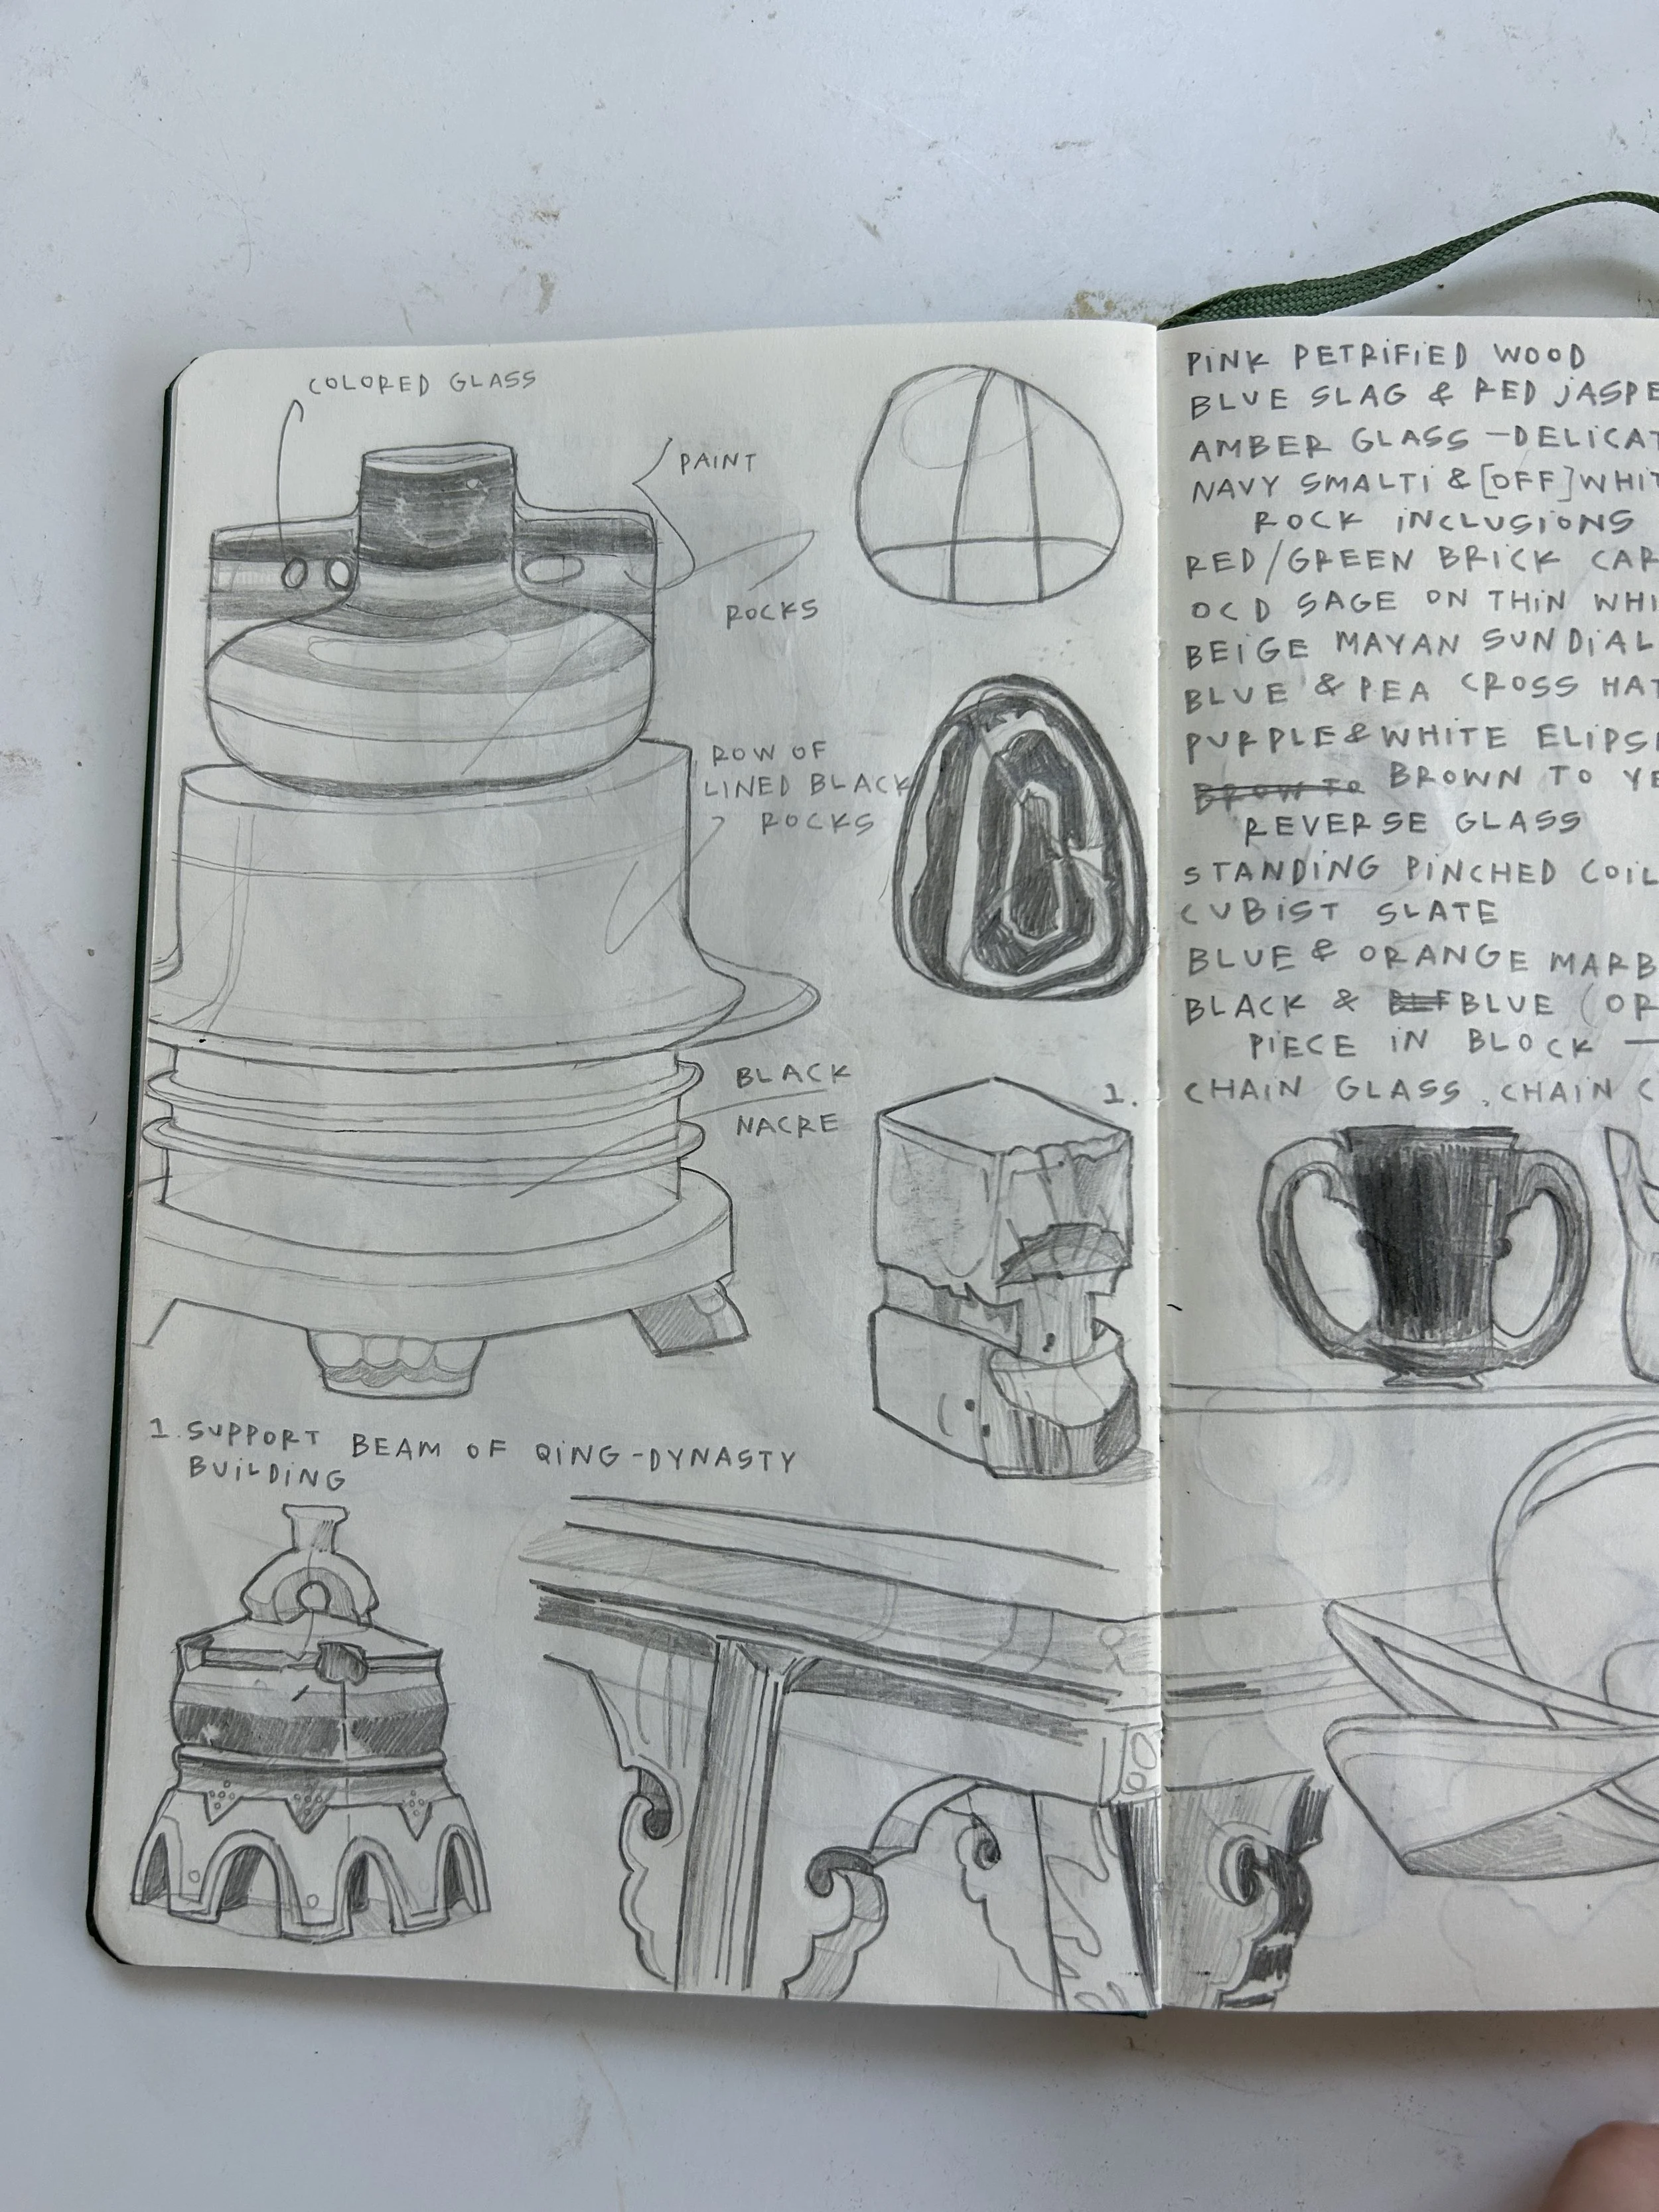 COLORED GLASS
PAINT
ROCKS
ROW OF
LINED BLACK
ROCKS
BLACK
NACRE
1.
1. SUPPORT BEAM OF QING-DYNASTY
BUILDING
PINK PETRIFIED WOOD
BLUE SLAG & RED JASPE
AMBER GLASS - DELICAT
NAVY SMALTI & [OFF] WHIT
ROCK INCLUSIONS
RED/GREEN BRICK CAR
OCD SAGE ON THIN WHI
BEIGE MAYAN SUNDIAL
BLUE & PEA CROSS HAT
PURPLE & WHITE ELIPS
BROWN TO YE
REVERSE GLASS
STANDING PINCHED COIL
CUBIST SLATE
BLUE & ORANGE MARB
BLACK & BLUE (OR
PIECE IN BLOCK —
CHAIN GLASS, CHAIN C